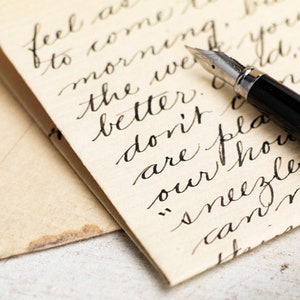 feel as
to come to
morning, bu
the we you
better. 
don't c
are pla
our hou
"sneezle
can n